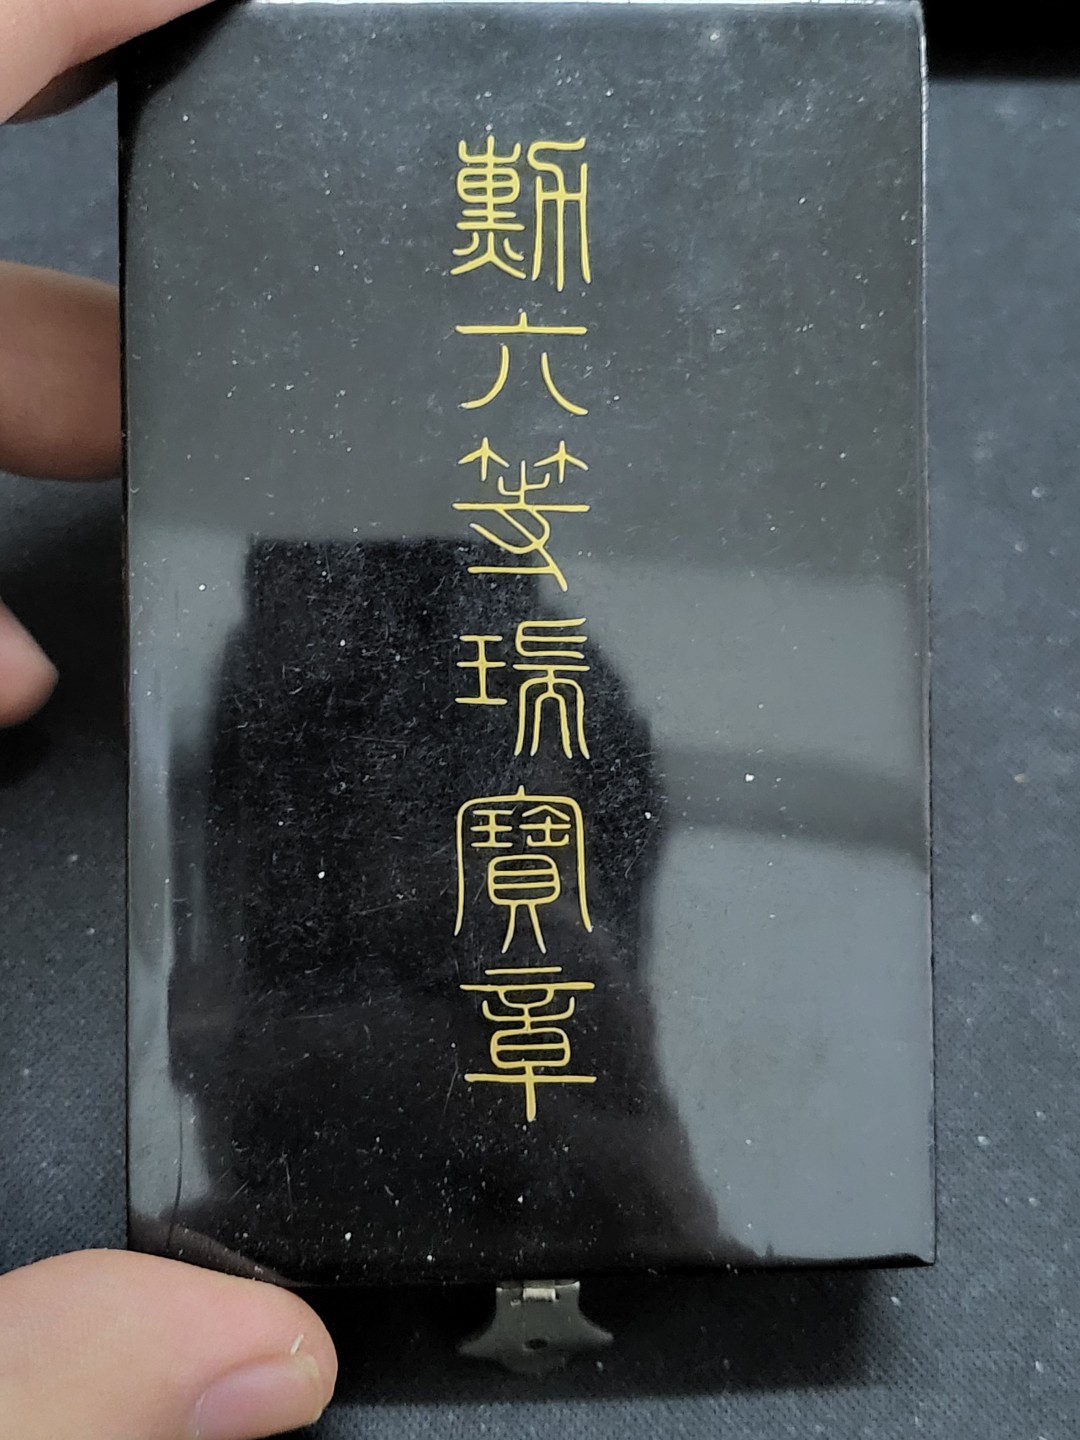 勲六等瑞寶章